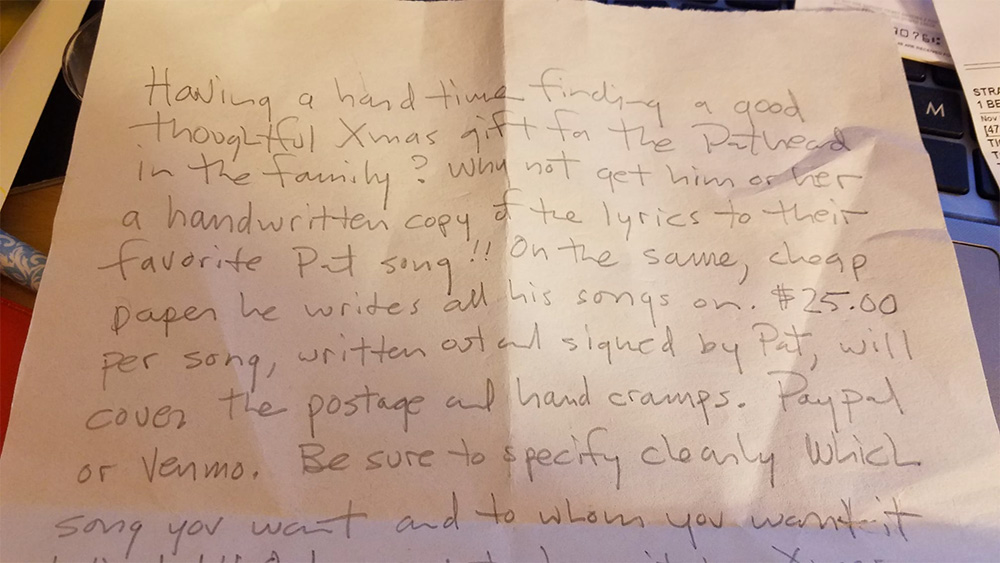 Having a hard time finding a good
thoughtful Xmas gift for the Pathead
in the family? Why not get him or her
a handwritten copy of the lyrics to their
favorite Pat song!! On the same, cheap
paper he writes all his songs on. $25.00
per song, written out and signed by Pat, will
cover the postage and hand cramps. Paypal
or Venmo. Be sure to specify clearly which
song you want and to whom you want it
Xmas
M
STRA
1 BE
Nov
[47